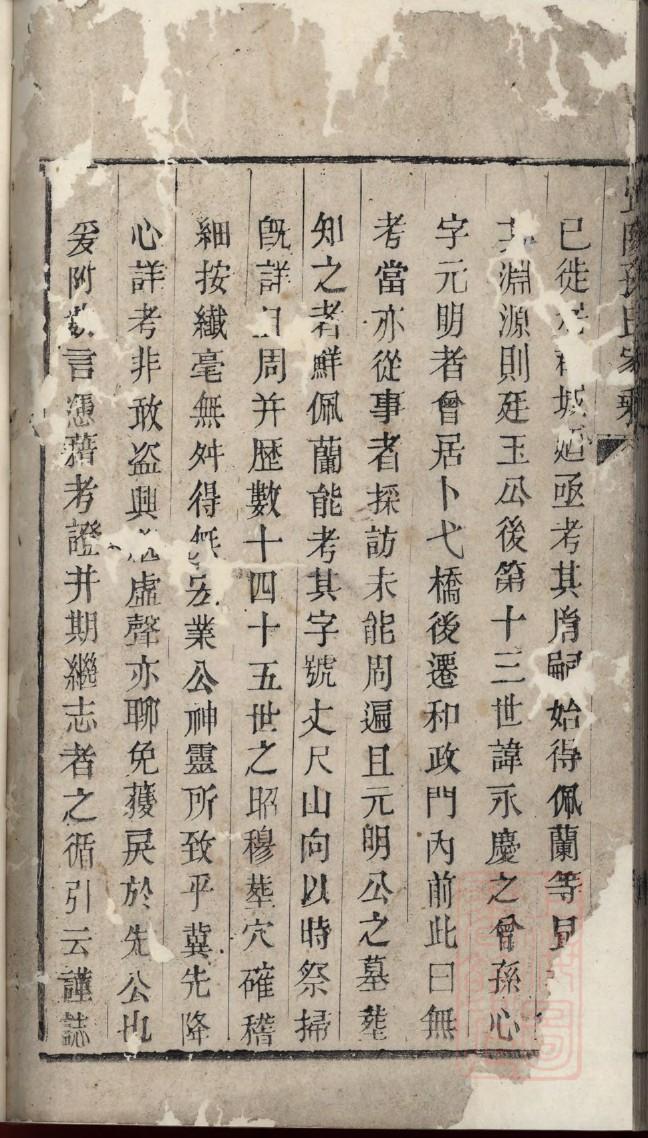 孫氏家乘
已徙居 城廼亟考其裔嗣始得佩蘭等
其淵源則廷玉公後第十三世諱永慶之曾孫心
字元明者曾居卜弋橋後遷和政門內前此曰無
考當亦從事者採訪未能周遍且元明公之墓塟
知之者鮮佩蘭能考其字號丈尺山向以時祭掃
既詳且周并歷數十四十五世之昭穆塟穴確稽
細按纖毫無舛得 宏業公神靈所致乎冀先降
心詳考非敢盗興 虛聲亦聊免獲戾於先公也
爰附 言憑藉考證并期繼志者之循引云謹誌